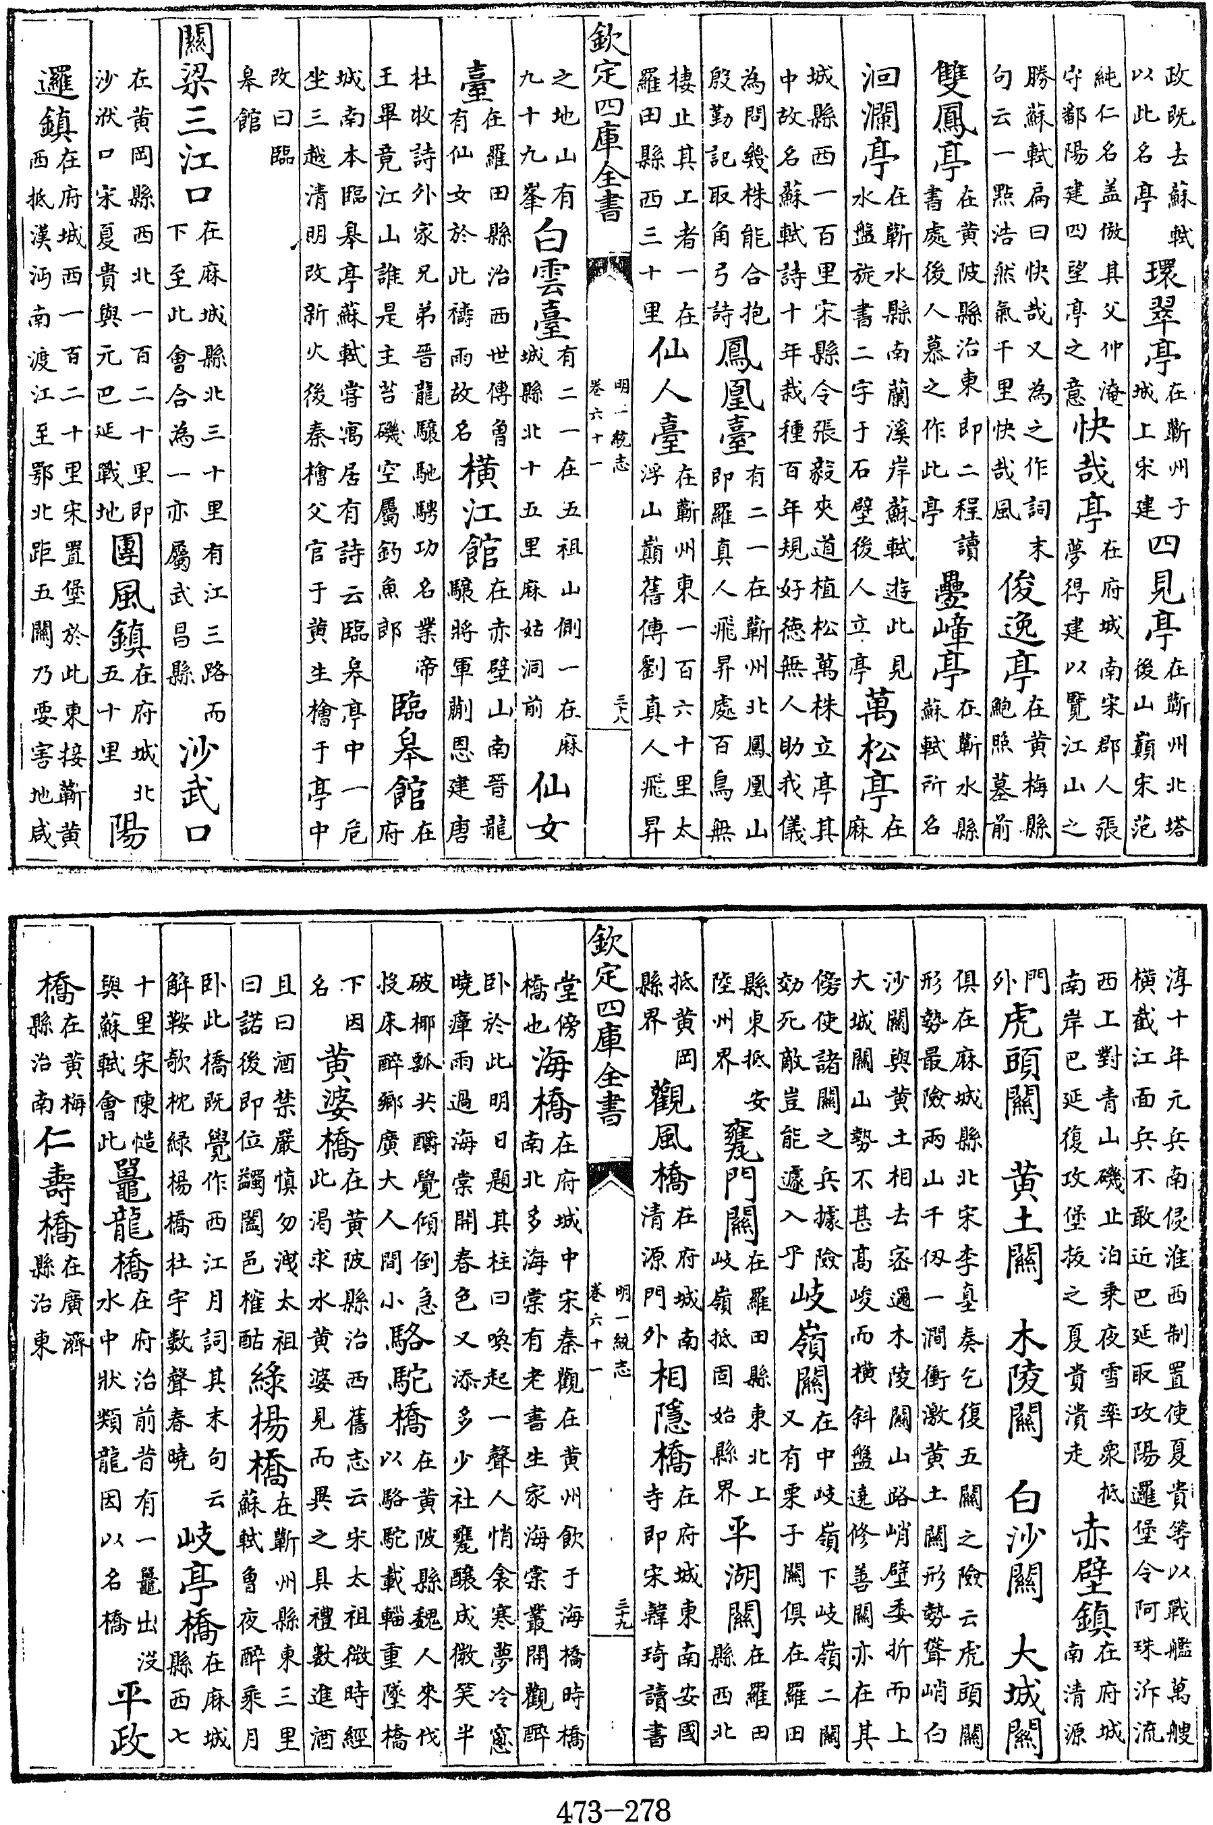 政既去蘇軾以此名亭環翠亭在蘄州于城上宋建四見亭在蘄州北塔後山巔宋范
純仁名盖倣其父仲淹守鄱陽建四望亭之意快哉亭在府城南宋郡人張夢得建以覽江山之
勝蘇軾扁曰快哉又為之作詞末句云一㸃浩然氣千里快哉風俊逸亭在黄梅縣鮑照墓前
雙鳳亭在黄陂縣治東即二程讀書處後人慕之作此亭疊嶂亭在蘄水縣蘇軾所名
洄瀾亭在蘄水縣南蘭溪岸蘇軾遊此見水盤旋書二字于石壁後人立亭萬松亭在麻
城縣西一百里宋縣令張毅夾道植松萬株立亭其中故名蘇軾詩十年栽種百年規好德無人助我儀
為問幾株能合抱殷勤記取角弓詩鳳凰臺有二一在蘄州北鳳凰山即羅真人飛昇處百鳥無
棲止其上者一在羅田縣西三十里仙人臺在蘄州東一百六十里太浮山巔舊傳劉真人飛昇
欽定四庫全書 明一統志 卷六十一 三十八
之地山有九十九峯白雲臺有二一在五祖山側一在麻城縣北十五里麻姑洞前仙女
臺在羅田縣治西世傳魯有仙女於此禱雨故名橫江館在赤壁山南晉龍驤將軍蒯恩建唐
杜牧詩外家兄弟晉龍驤馳騁功名業帝王畢竟江山誰是主苔磯空屬釣魚郎臨皋館在府
城南本臨皋亭蘇軾嘗寓居有詩云臨皋亭中一危坐三越清明改新火後秦檜父官于黄生檜于亭中
改曰臨皋館
關梁三江口在麻城縣北三十里有江三路而下至此會合為一亦屬武昌縣沙武口
在黄岡縣西北一百二十里即沙洑口宋夏貴與元巴延戰地團風鎮在府城北五十里陽
邏鎮在府城西一百二十里宋置堡於此東接蘄黄西抵漢沔南渡江至鄂北距五關乃要害地咸
淳十年元兵南侵淮西制置使夏貴等以戰艦萬艘橫截江面兵不敢近巴延取攻陽邏堡令阿珠泝流
西上對青山磯止泊乗夜雪率衆抵南岸巴延復攻堡拔之夏貴潰走赤壁鎮在府城南清源
門外虎頭關 黄土關 木陵關 白沙關 大城關
俱在麻城縣北宋李𡌴奏乞復五關之險云虎頭關形勢最險兩山千仭一澗衝激黄土關形勢聳峭白
沙關與黄土相去宻邇木陵關山路峭壁委折而上大城關山勢不甚高峻而橫斜盤遶修善關亦在其
傍使諸關之兵據險効死敵豈能遽入乎岐嶺關在中岐嶺下岐嶺二關又有栗于關俱在羅田
縣東抵安陸州界甕門關在羅田縣東北上岐嶺抵固始縣界平湖關在羅田縣西北
抵黄岡縣界觀風橋在府城南清源門外相隱橋在府城東南安國寺即宋韓琦讀書
欽定四庫全書 明一統志 卷六十一 三十九
堂傍橋也海橋在府城中宋秦觀在黄州飲于海橋時橋南北多海棠有老書生家海棠叢開觀醉
卧於此明日題其柱曰喚起一聲人悄衾寒夢冷窻曉瘴雨過海棠開春色又添多少社甕釀成㣲笑半
破椰瓢共酌覺傾倒急投床醉鄉廣大人間小駱駝橋在黄陂縣魏人來伐以駱駝載輜重墜橋
下因名黄婆橋在黄陂縣治西舊志云宋太祖㣲時經此渴求水黄婆見而異之具禮數進酒
且曰酒禁嚴慎勿洩太祖曰諾後即位蠲闔邑榷酤緑楊橋在蘄州縣東三里蘇軾㑹夜醉乗月
卧此橋既覺作西江月詞其末句云解鞍欹枕緑楊橋杜宇數聲春曉岐亭橋在麻城縣西七
十里宋陳慥與蘇軾會此鼉龍橋在府治前昔有一鼉出没水中狀類龍因以名橋平政
橋在黄梅縣治南仁壽橋在廣濟縣治東
473-278